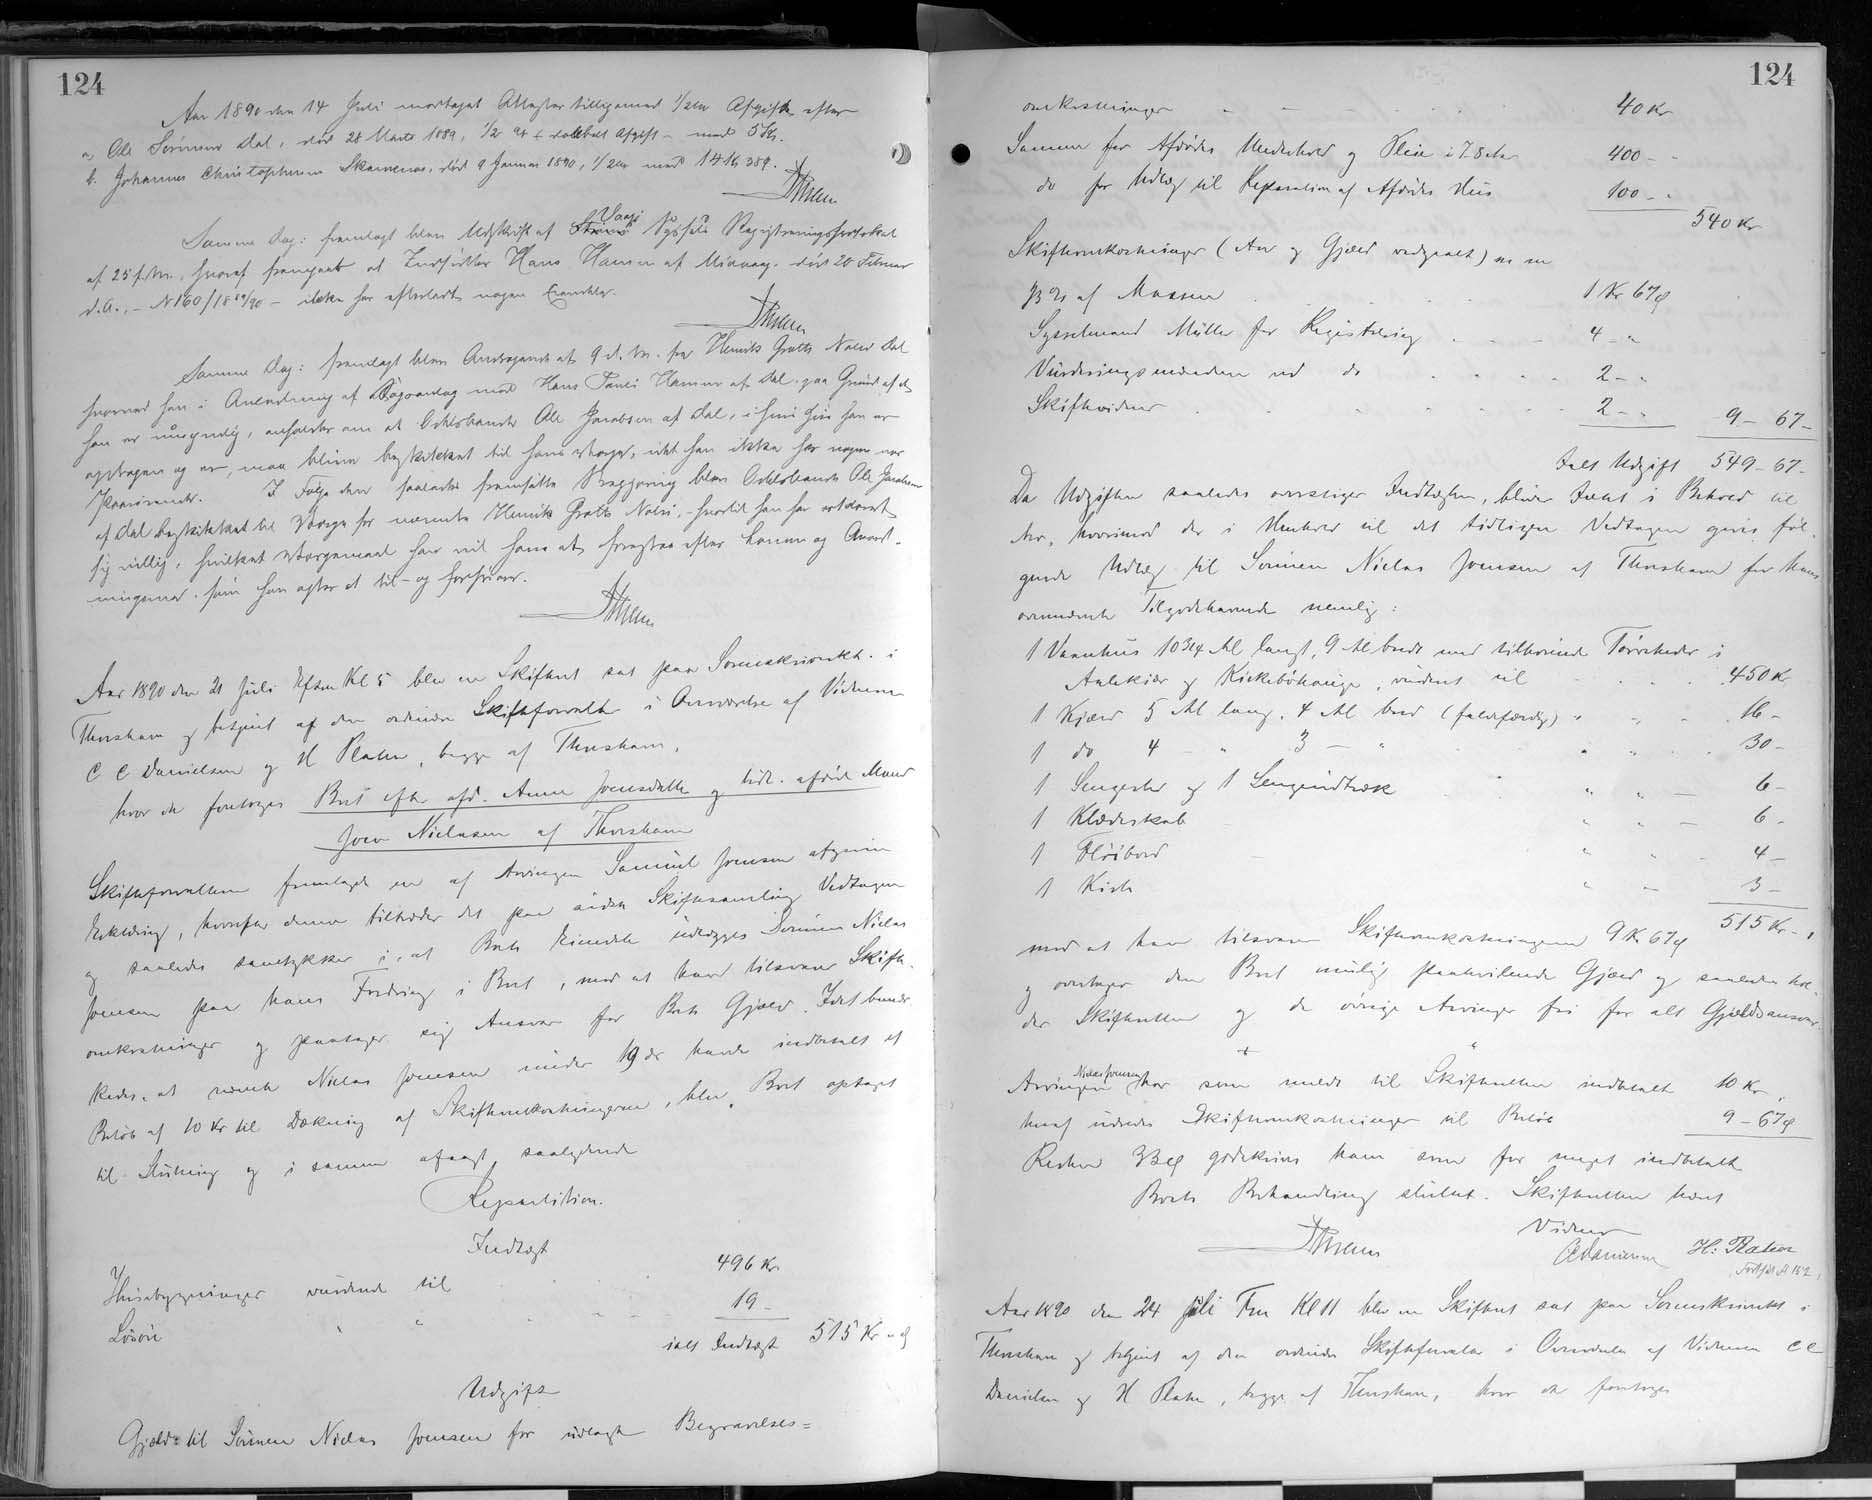 124
Aar 1890 den 14 Juli modtaget Attester tilligemed 1/2 % Afgift efter
a, Ole Sörensen Dal, död 28 Marts 1889, 1/2 % Afgift - med 5 Kr.
b. Johannes Christophersen Skarvenæs, död 9 Januar 1890, 1/2 % med 14 Kr 38 Ø.
Samme Dag: fremlagt blev Udskrift af Vaagö Syssels Registreringsprotokol
af 25 f. M., hvoraf fremgaar at Indsidder Hans Hansen af Midvaag, död 20 Februar
d. A., - N 160/1889/90 - ikke har efterladt nogen Eiendele.
Samme Dag: fremlagt blev Andragende af 9 d. M. fra Henrik Grott Nolsö Dal
hvorved han i Anledning af Søgsmaal mod Hans Pauli Hansen af Dal, paa Grund af at
han er umyndig, anholder om at Odelsbonde Ole Jacobsen af Dal, i hvis Huus han er
opdragen og er, maa blive beskikket til hans Værge, idet han ikke har nogen nær
Paarörende. I Følge den saaledes fremsatte Begjæring blev Odelsbonde Ole Jacobsen
af Dal beskikket til Værge for nævnte Henrik Grott Nolsö, - hvortil han har erklæret
sig villig, hvilket Værgemaal han vil have at foregtaa efter Loven og Anord-
ningerne, som han agter at til- og forsvare.
Aar 1890 den 21 Juli Eftm Kl 5 blev en Skifteret sat paa Sorenskriverkt. i
Thorshavn og betjent af den ordinære Skifteforvalter i Overværelse af Vidnerne
C C Danielsen og H Platen, begge af Thorshavn,
hvor da foretoges Boet efter afd. Anne Joensdatter og tidl. afdöde Mand
Joen Nielasen af Thorshavn
Skifteforvalteren fremlagde en af Arvingen Samuel Joensen afgiven
Erklæring, hvorefter denne tiltræder det paa sidste Skiftesamling Vedtagne
og saaledes samtykker i, at Boets Eiendele udlægges Sönnen Niclas
Joensen paa hans Fordring i Boet, mod at han tilsvarer Skifte-
omkostninger og paatager sig Ansvar for Boets Gjæld. Idet bemær-
kedes, at nævnte Niclas Joensen under 19 ds havde indbetalt et
Beløb af 10 Kr til Dækning af Skifteomkostningerne, blev Boet optaget
til Slutning og i samme afsagt saalydende
Repartition.
Indtægt
Husebygninger vurderede til 496 Kr
Lösöre " 19 -
ialt Indtægt 515 Kr " Ø
Udgift
Gjæld til Sönnen Niclas Joensen for udlagte Begravelses=
124
omkostninger 40 Kr
Samme for Afdødes Underhold og Pleie i 7 8 Aar 400 - "
do for Udlæg til Reparation af Afdødes Hus 100 - "
540 Kr
Skifteomkostninger (Arv og Gjæld vedgaaet) m m
1/3 % af Massen 1 Kr 67 Ø
Sysselmand Müller for Registrering 4 - "
Vurderingsmændene ved do 2 - "
Skiftevidner 2 - " 9 - 67 -
Ialt Udgift 549 - 67 -
Da Udgiften saaledes overstiger Indtægten, bliver Intet i Behold til
Arv, hvorimod der i Henhold til det tidligere Vedtagne gives føl-
gende Udlæg til Sönnen Niclas Joensen af Thorshavn for hans
ovennævnte Tilgodehavende nemlig:
1 Vaanhus 10 3/4 Al langt, 9 Al bredt med tilhörende Törvesteder i
Aalekjær og Kirkeböhauge, vurderet til 450 Kr
1 Kjæld 5 Al lang, 4 Al bred (faldefærdig) " " 16 -
1 do 4 - " 3 - " " " 30 -
1 Sengested og 1 Sengeudtræk " " 6 -
1 Klædeskab " " 6 -
1 Flöibord " " 4 -
1 Kiste " " 3 -
515 Kr - "
mod at han tilsvarer Skifteomkostningerne 9 Kr 67 Ø
og overtager den Boet mulig paahvilende Gjæld og saaledes hol-
der Skifteretten og de övrige Arvinger fri for alt Gjældsansvar.
Arvingen Niclas Joensen har som meldt til Skifteretten indbetalt 10 Kr "
heraf udredes Skifteomkostninger til Beløb 9 - 67 Ø
Resten 33 Ø godskrives ham som for meget indbetalt
Boets Behandling sluttet. Skifteretten hævet
Vidner
CCDanielsen H: Platen
Aar 1890 den 24 Juli Fm Kl 11 blev en Skifteret sat paa Sorenskriverkt i
Thorshavn og betjent af den ordinære Skifteforvalter i Overværelse af Vidnerne C C
Danielsen og H Platen, begge af Thorshavn, hvor da foretoges